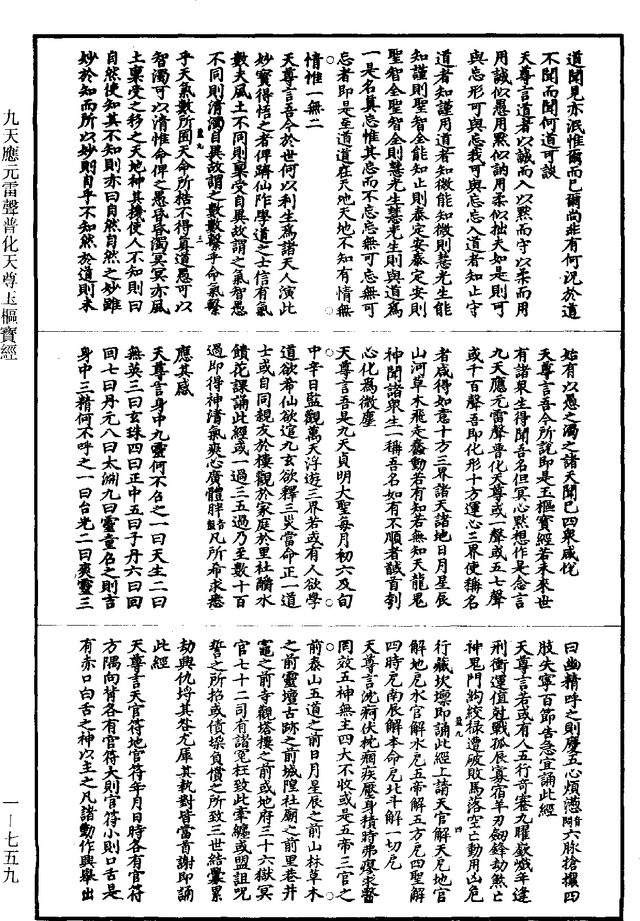 道聞見亦泯惟爾而已爾尚非有何況於道
不聞而聞何道可談
天尊言道者以誠而入以默而守以柔而用
用誠似愚用默似訥用柔似拙夫如是則可
與忘形可與忘我可與忘忘入道者知止守
道者知謹用道者知微能知微則慧光生能
知謹則聖智全能知止則泰定安泰定安則
聖智全聖智全則慧光生慧光生則與道為
一是名真忘惟其忘而不忘忘無可忘無可
忘者即是至道道在天地天地不知有情無
情惟一無二
天尊言吾今於世何以利生為諸天人演此
妙寶得悟之者俾躋仙阼學道之士信有氣
數夫風土不同則稟受自異故謂之氣智愚
不同則清濁自異故謂之數數繫乎命氣繫
乎天氣數所囿天命所梏不得真道愚可以
智濁可以清惟命俾之愚昏昏濁冥冥亦風
土稟受之移之天地神其機使人不知則曰
自然使知其不知則亦曰自然自然之妙雖
妙於知而所以妙則自乎不知然於道則未
始有以愚之濁之諸天聞已四眾咸悅
天尊言吾今所說即是玉樞寶經若未來世
有諸眾生得聞吾名但冥心默想作是念言
九天應元雷聲普化天尊或一聲或五七聲
或千百聲吾即化形十方運心三界使稱名
者咸得如意十方三界諸天諸地日月星辰
山河草木飛走蠢動若有知若無知天龍鬼
神聞諸眾生一稱吾名如有不順者馘首刳
心化為微塵
天尊言吾是九天貞明大聖每月初六及旬
中辛日監觀萬天浮遊三界若或有人欲學
道欲希仙欲逭九玄欲釋三災當命正一道
士或自同親友於樓觀於家庭於里社醮水
饋花課誦此經或一過三五過乃至數十百
過即得神清氣爽心廣體胖凡所希求悉
應其感
天尊言身中九靈何不召之一曰天生二曰
無英三曰玄珠四曰正中五曰子丹六曰回
回七曰丹元八曰太淵九曰靈童召之則吉
身中三精何不呼之一曰台光二曰爽靈三
曰幽精呼之則慶五心煩懣六脉搶攘四
肢失寧百節告急宜誦此經
天尊言若或有人五行奇蹇九曜嶔巇年逢
刑衝運值尅戰孤辰寡宿羊刃劍鋒劫煞亡
神鬼門鉤絞祿遭破敗馬落空亡動用凶危
行藏坎壈即誦此經上請天官解天厄地官
解地厄水官解水厄五帝解五方厄四聖解
四時厄南辰解本命厄北斗解一切厄
天尊言沉痾伏枕痼疾壓身積時弗瘳求醫
罔效五神無主四大不收或是五帝三官之
前泰山五道之前日月星辰之前山林草木
之前靈壇古跡之前城隍社廟之前里巷井
竈之前寺觀塔樓之前或地府三十六獄冥
官七十二司有諸冤枉致此牽纏或盟詛呪
誓之所招或債垛負償之所致三世結釁累
劫興仇埒其咎尤庫其執對皆當首謝即誦
此經
天尊言天官符地官符年月日時各有官符
方隅向背各有官符大則官符小則口舌是
有赤口白舌之神以主之凡諸動作興舉出
九天應元雷聲普化天尊玉樞寶經
一—七五九